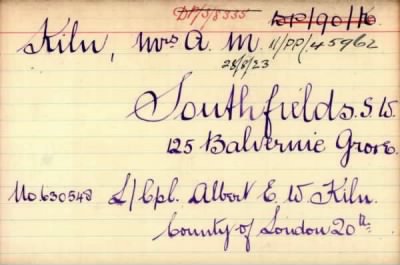 DP/5/8335
Kiln, Mrs A. M. 11/PP/45962
28/8/23
Southfields. S.W.
125 Balvernie Grove.
No. 630548 L/Cpl. Albert E. W. Kiln.
County of London 20th.